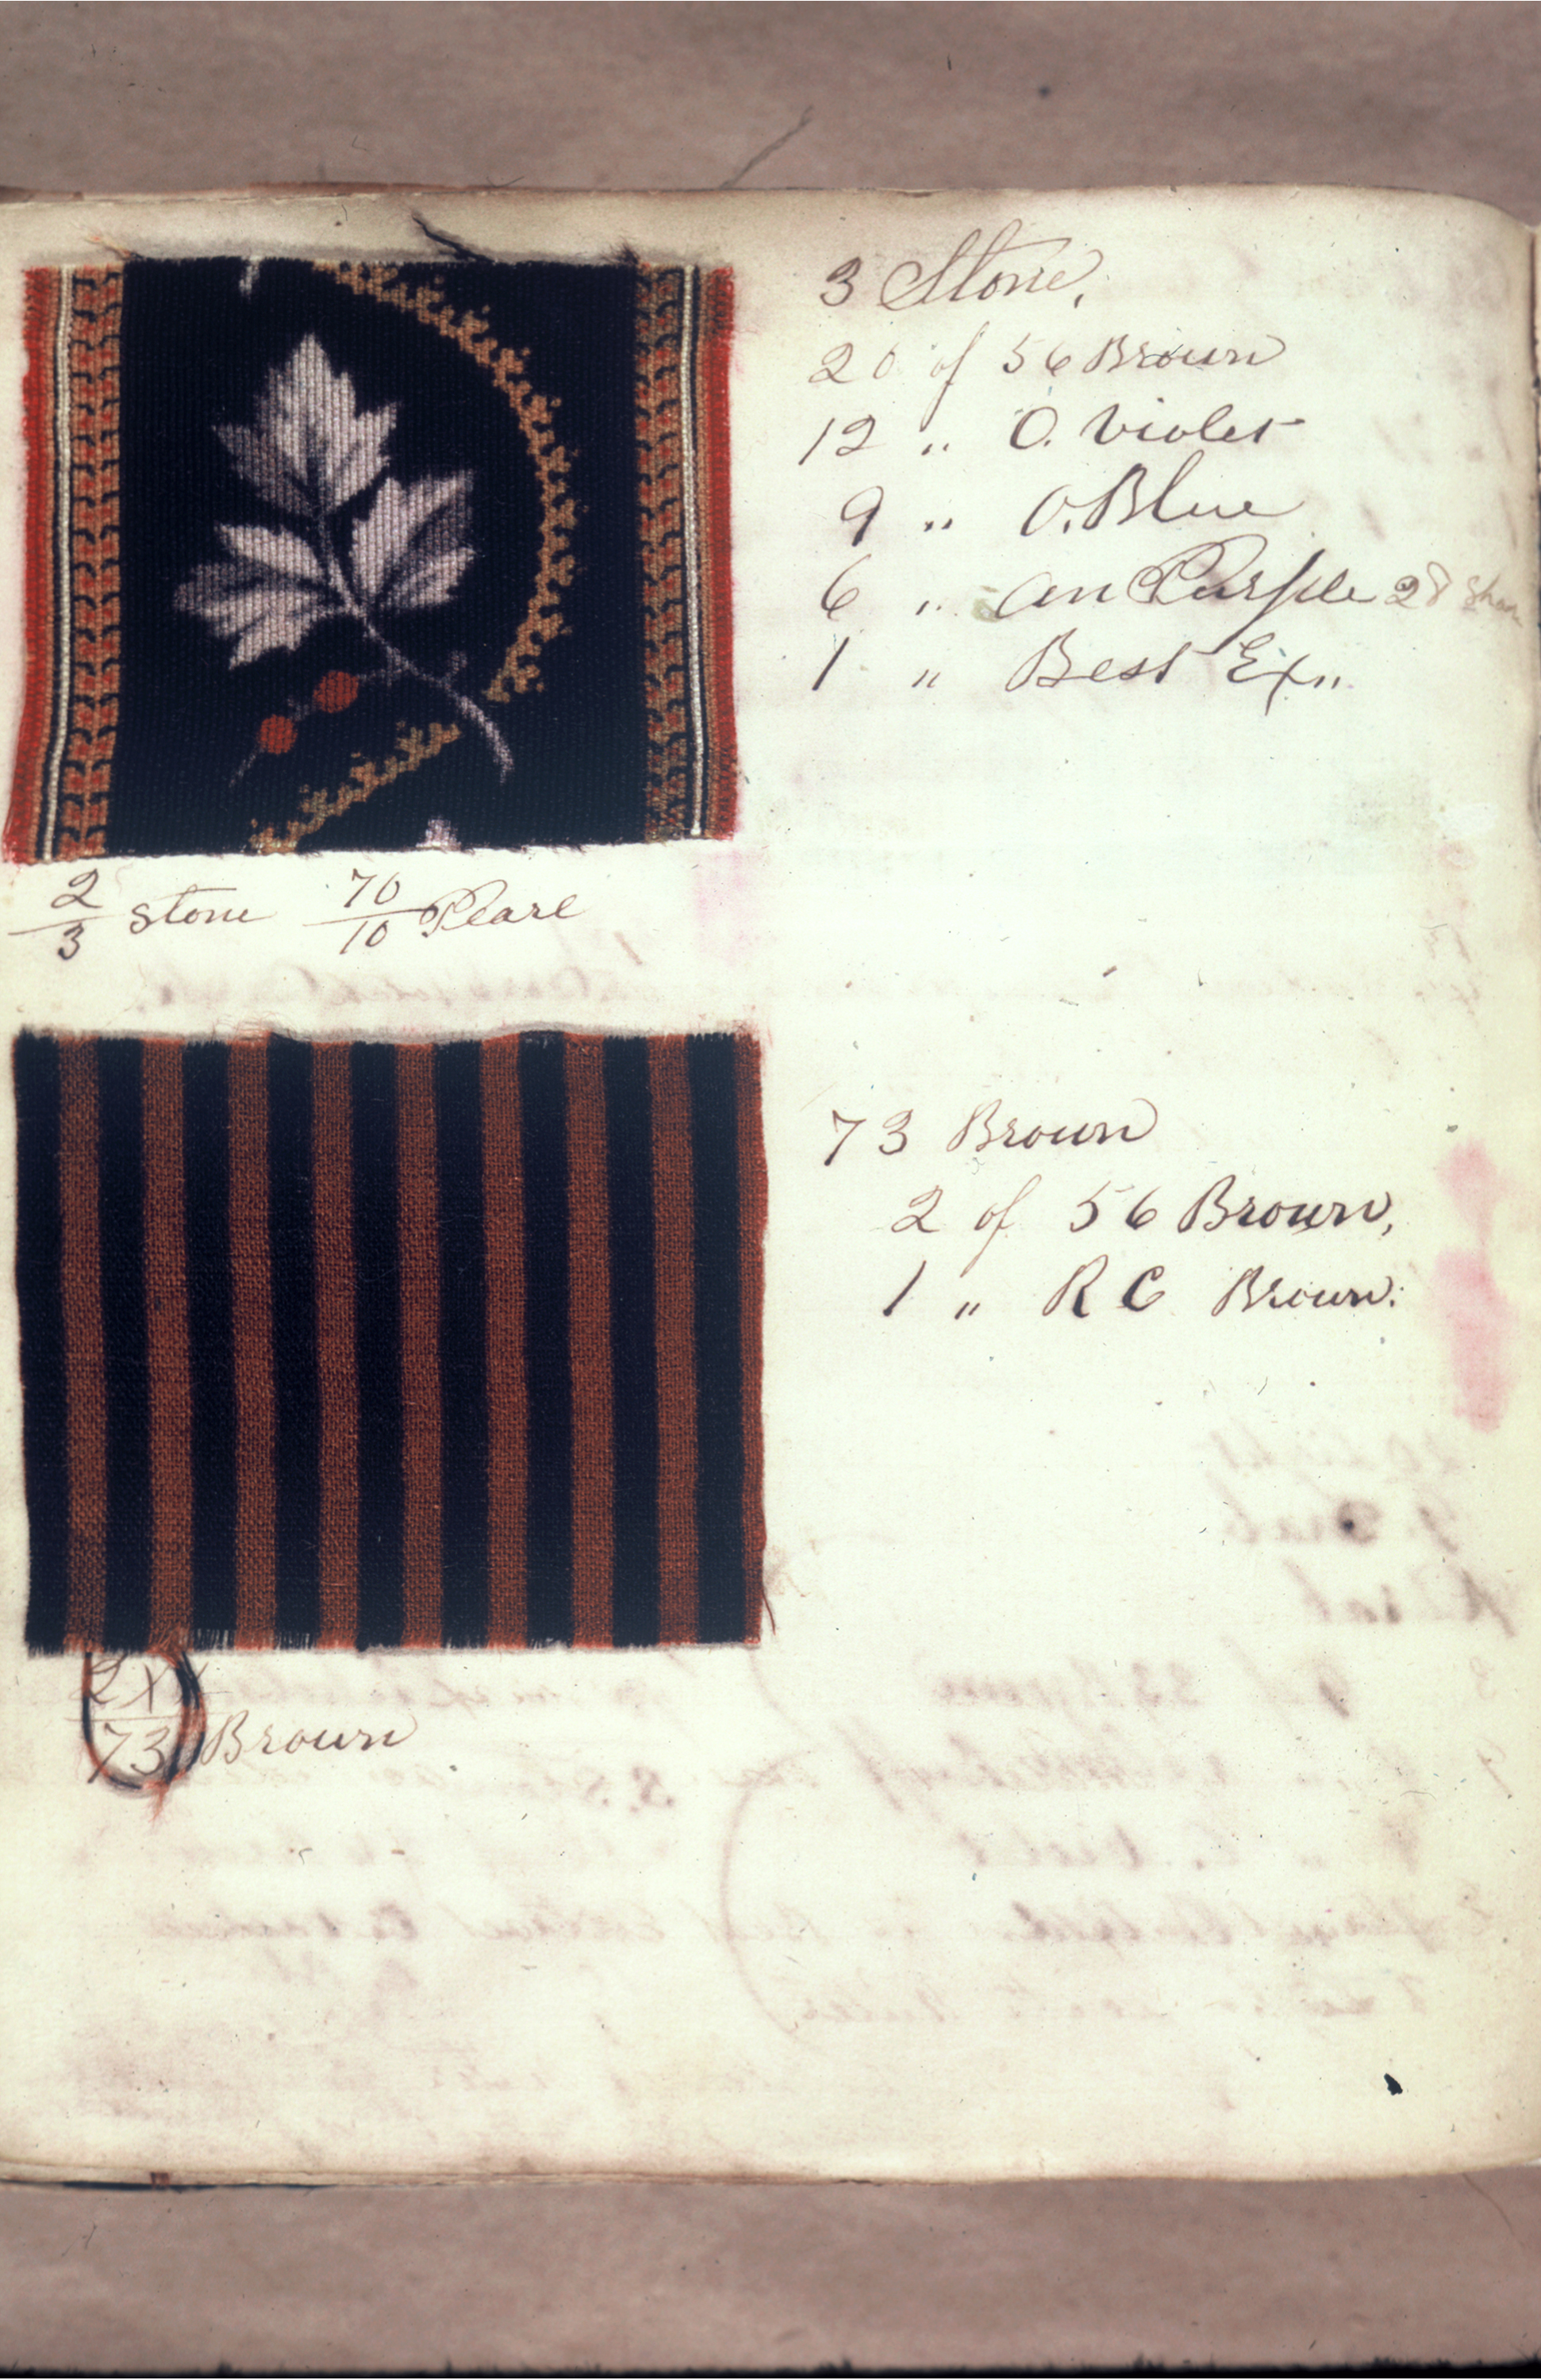 3 Stone,
20 of 56 Brown
12 " O. Violet
9 " O. Blue
6 " an Purple 28
1 " Best Ex"
2/3 Stone 70/10 Pearl
73 Brown
2 of 56 Brown,
1 " R C Brown.
73 Brown